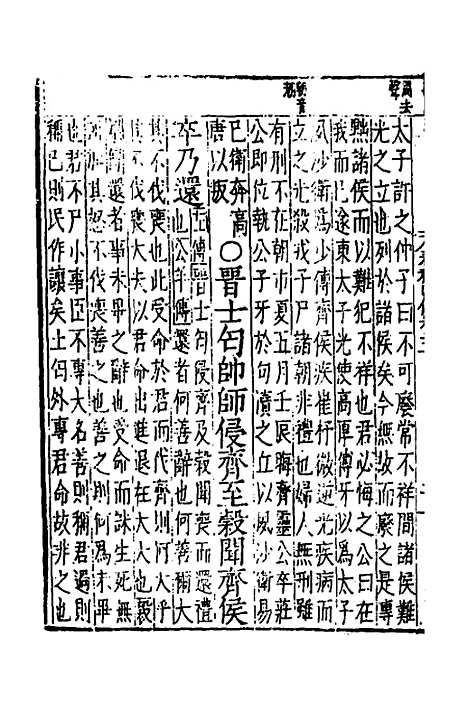 太子許之仲子曰不可廢常不祥間諸侯難
光之立也列於諸侯矣今無故而廢之是專
黜諸侯而以難犯不祥也君必悔之公曰在
我而已遂東太子光使高厚傅牙以為太子
夙沙衛為少傅齊侯疾崔杼微逆光疾病而
立之光殺戎子尸諸朝非禮也婦人無刑雖
有刑不在朝市夏五月壬辰晦齊靈公卒莊
公即位執公子牙於句瀆之丘以夙沙衛易
已衛奔高
唐以叛
○晉士匄帥師侵齊至穀聞齊侯
卒乃還
左傳晉士匄侵齊及穀聞喪而還禮
也公羊傳還者何善辭也何善爾大
其不伐喪也此受命於君而伐齊則何大乎
其不伐喪大夫以君命出進退在大夫也穀
梁傳還者事未畢之辭也受命而誅生死無
所加其怒不伐喪善之善之則何為未畢
也君不尸小事臣不專大名善則稱君過則
稱己則民作讓矣士匄外專君命故非之也